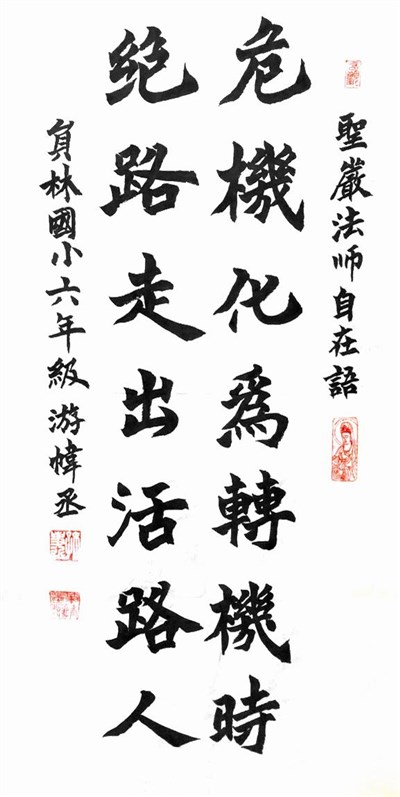 聖嚴法師自在語
危機化為轉機時
绝路走出活路人
員林國小六年級 游幃丞